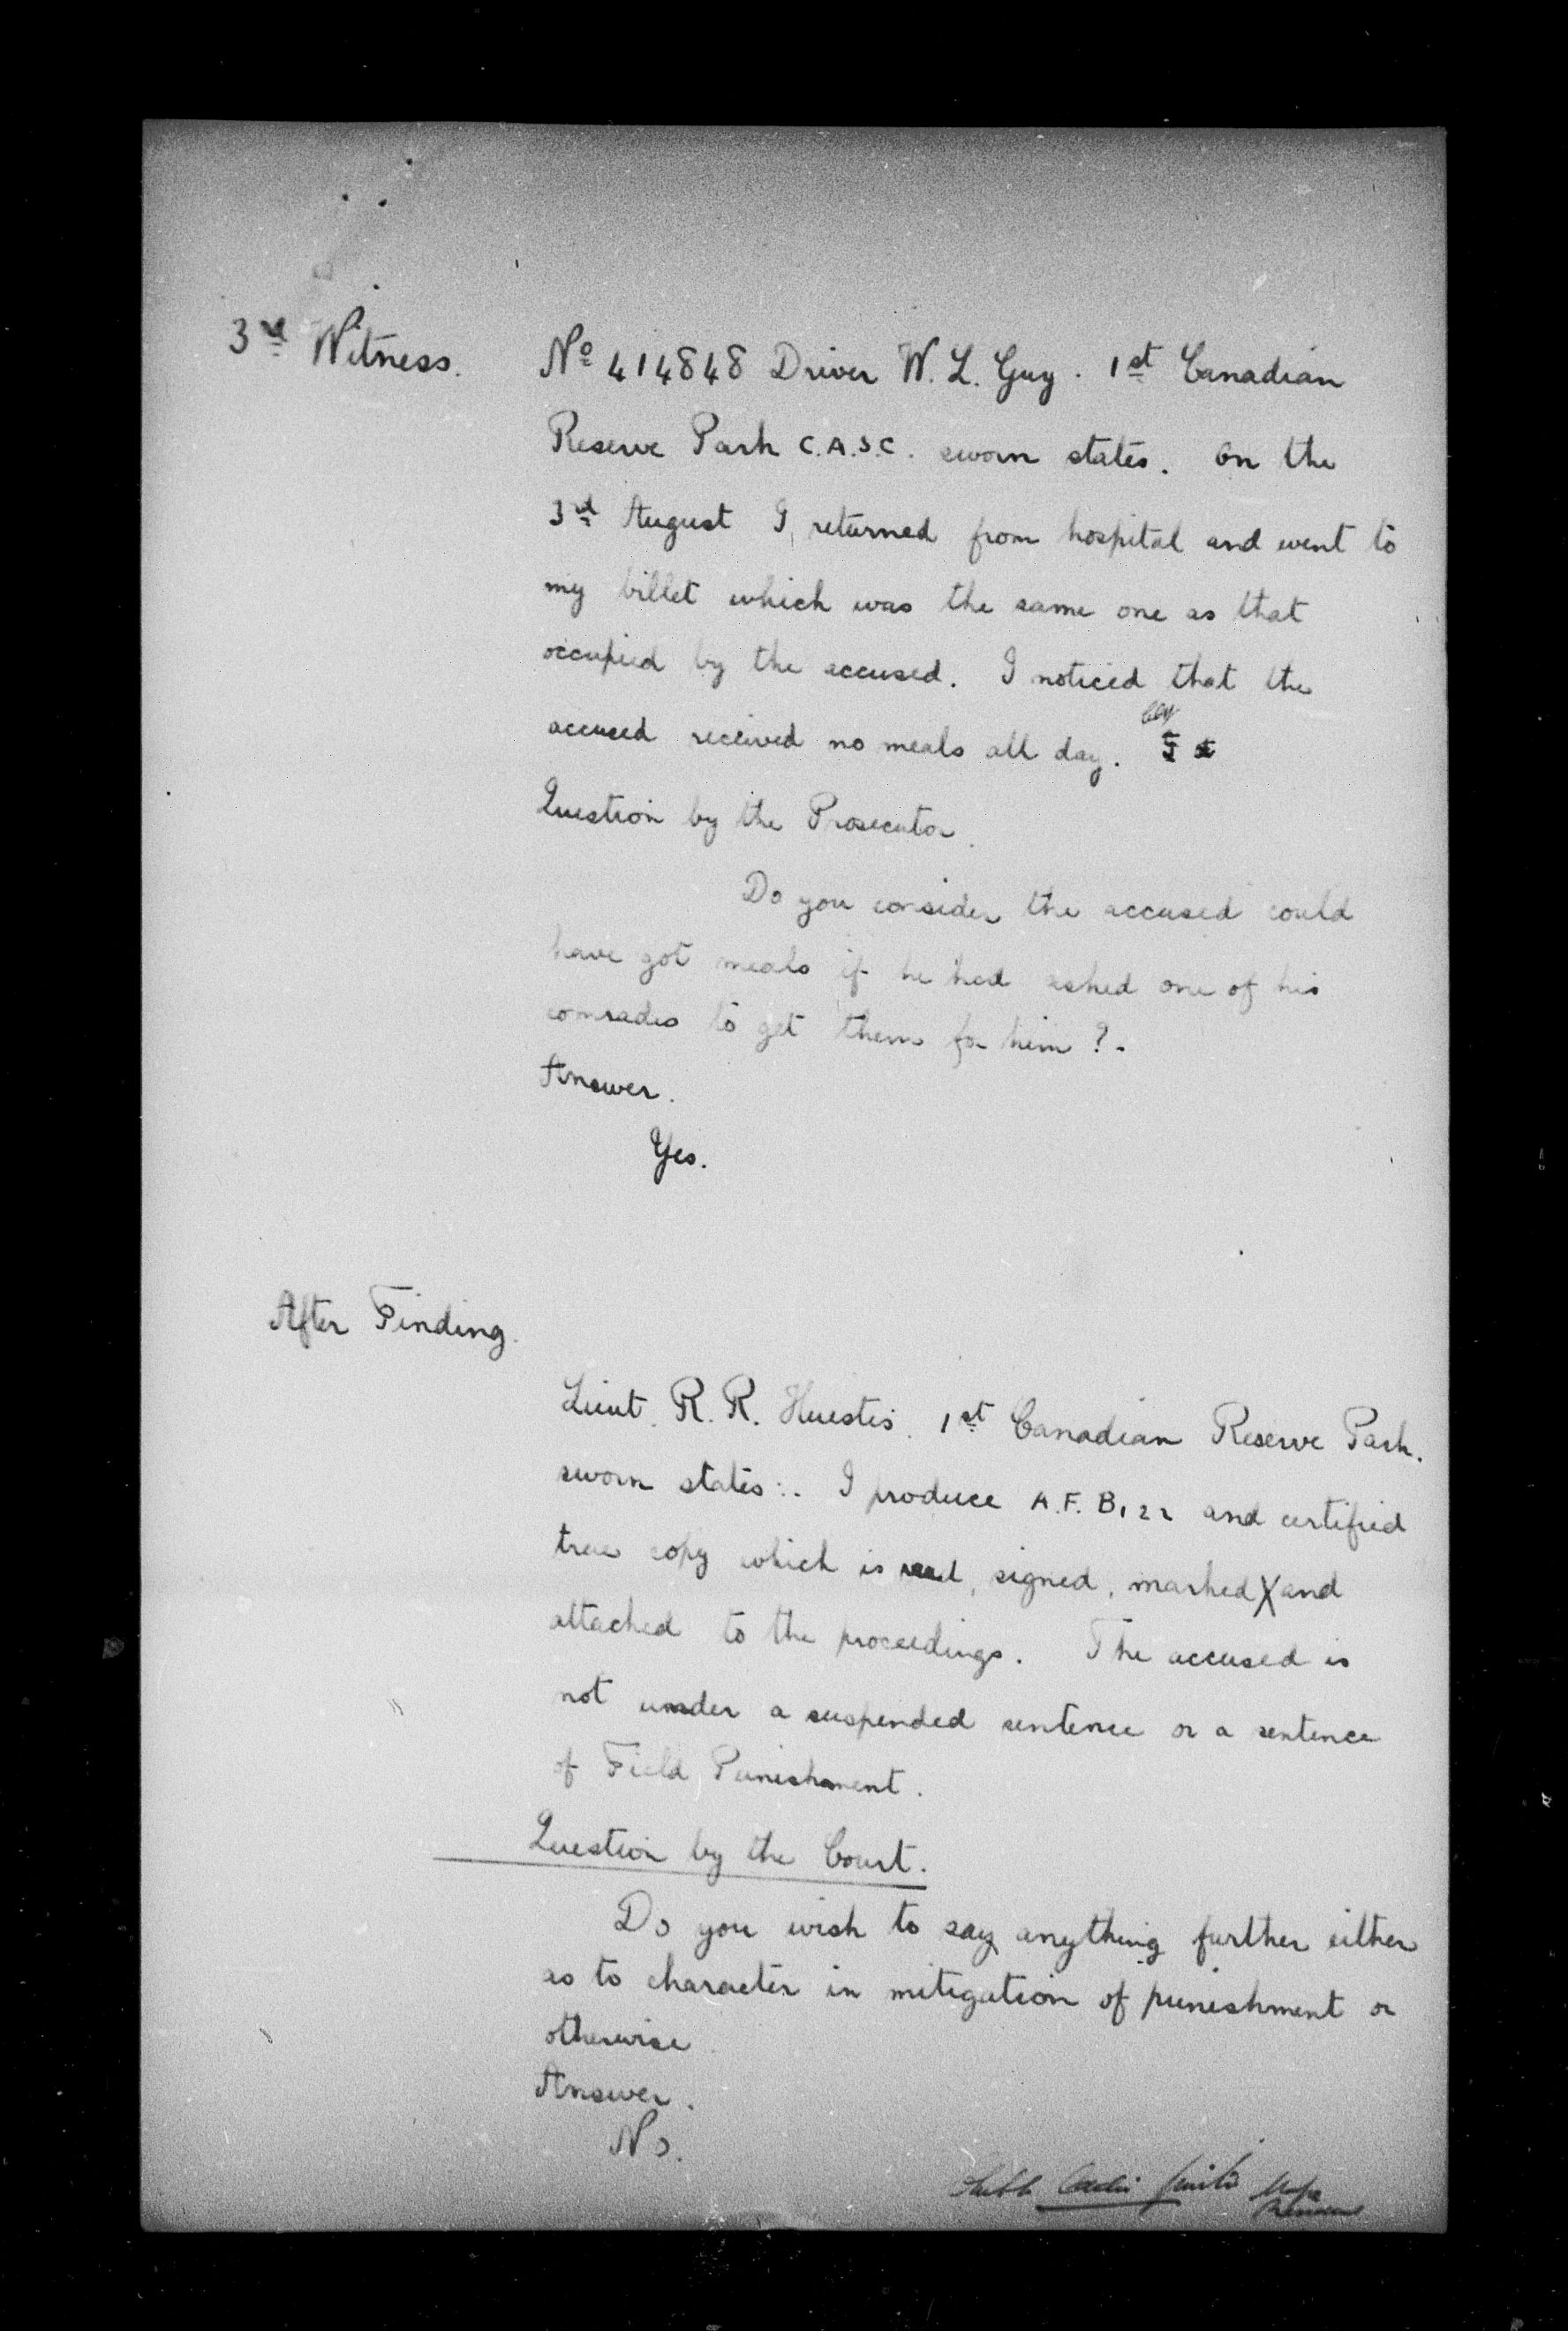 3rd Witness. No 414848 Driver W. L. Guy. 1st Canadian
Reserve Park C.A.S.C. sworn states. On the
3rd August I returned from hospital and went to
my billet which was the same one as that
occupied by the accused. I noticed that the
accused received no meals all day.
Question by the Prosecutor.
Do you consider the accused could
have got meals if he had asked one of his
comrades to get them for him ?.
Answer.
Yes.
After Finding.
Lieut. R. R. Huestis. 1st Canadian Reserve Park.
sworn states:. I produce A.F. B122 and certified
true copy which is read, signed, marked X and
attached to the proceedings. The accused is
not under a suspended sentence or a sentence
of Field Punishment.
Question by the Court.
Do you wish to say anything further either
as to character in mitigation of punishment or
otherwise
Answer.
No.